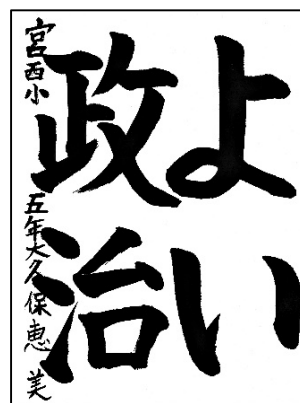 よい
政治
宮西小 五年大久保恵美